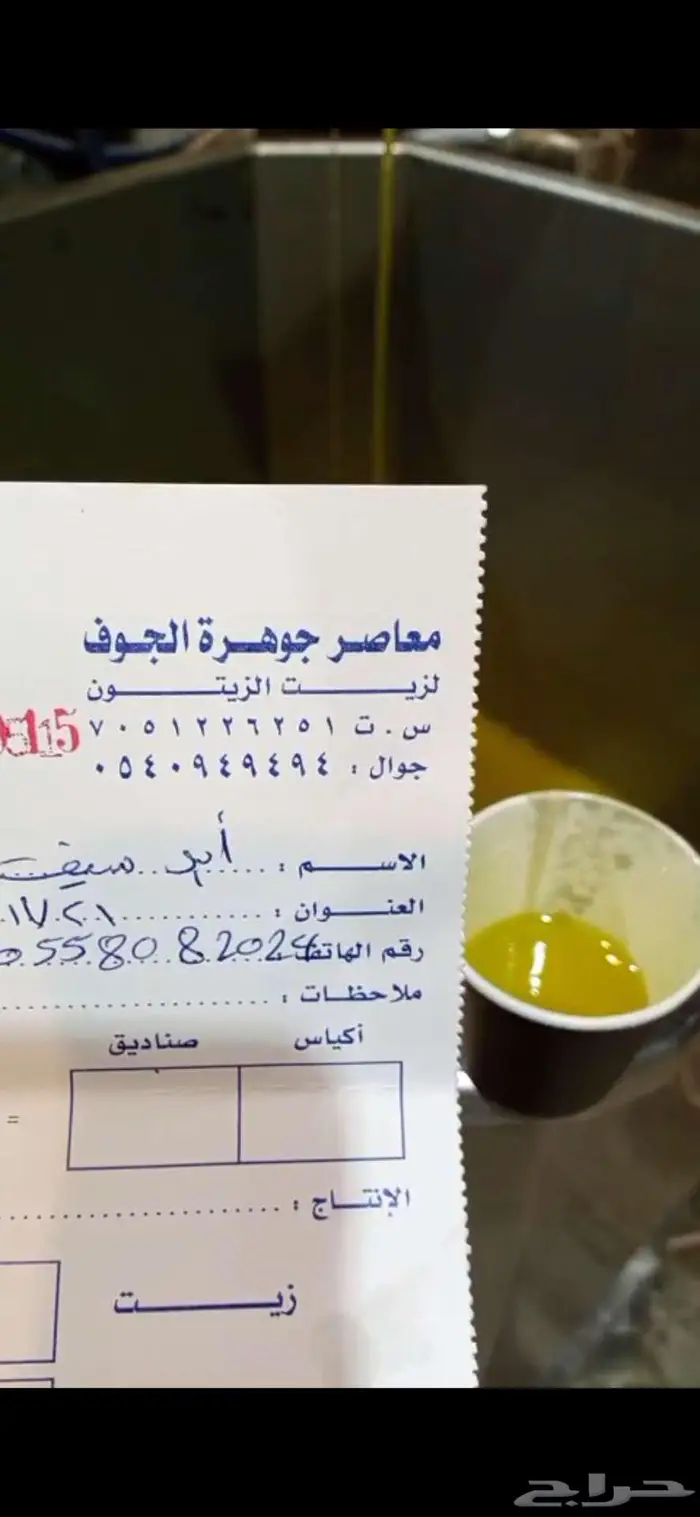 معاصر جوهرة الجوف
لزيت الزيتون
س . ت ٧٠٥١٢٢٦٢٥١
115
جوال : ٠٥٤٠٩٤٩٤٩٤
الاسم : أبو سيف
العنوان :
رقم الهاتف 0558082024
ملاحظات :
أكياس صناديق
=
الإنتاج :
زيت
حراج